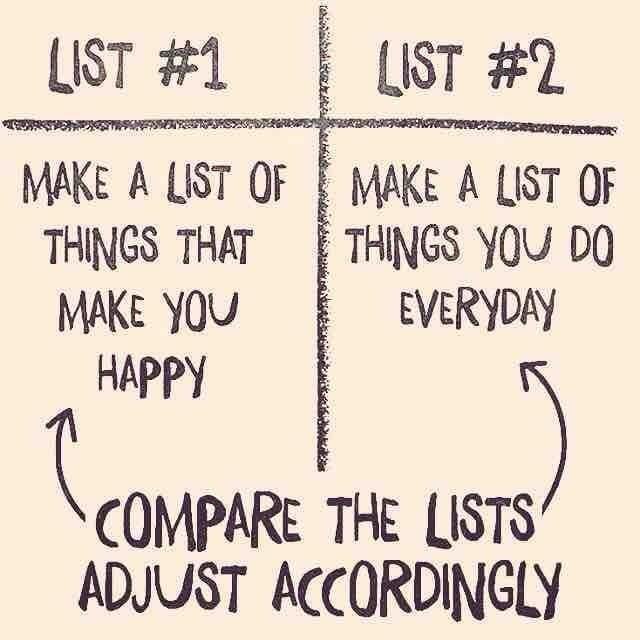 LIST #1
MAKE A LIST OF
THINGS THAT
MAKE YOU
HAPPY
LIST #2
MAKE A LIST OF
THINGS YOU DO
EVERYDAY
COMPARE THE LISTS
ADJUST ACCORDINGLY